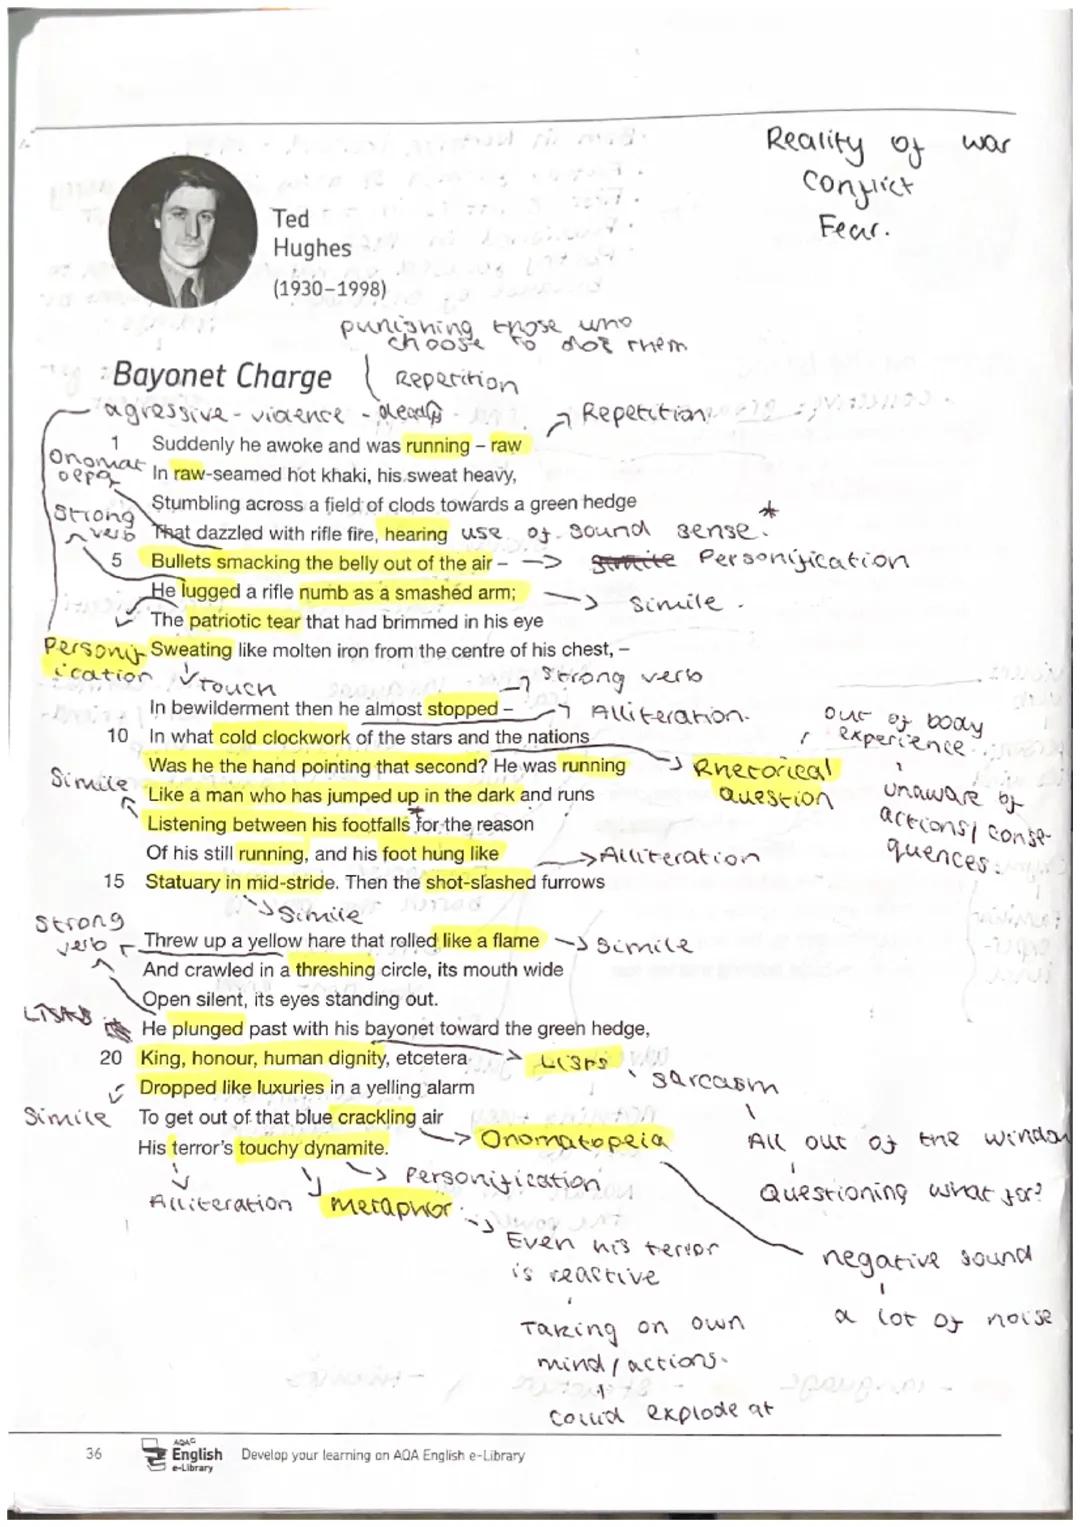 Reality of war
Conflict
Fear.
Ted
Hughes
(1930–1998)
punishing those who
choose to them
Bayonet Charge
Repetition
agressive - violence - deadly
Repetition
1 Suddenly he awoke and was running – raw
Onomat
oepa
In raw-seamed hot khaki, his sweat heavy,
Stumbling across a field of clods towards a green hedge
Strong
verb
That dazzled with rifle fire, hearing use of sound sense. *
5 Bullets smacking the belly out of the air – -> Personification
He lugged a rifle numb as a smashed arm; -> Simile.
The patriotic tear that had brimmed in his eye
Personif
ication
Sweating like molten iron from the centre of his chest, –
Touch
Strong verb
In bewilderment then he almost stopped –
Alliteration.
10 In what cold clockwork of the stars and the nations
out of body
experience
Was he the hand pointing that second? He was running
Rhetorical
question
Simile
Like a man who has jumped up in the dark and runs
unaware of
actions/conse-
quences.
Listening between his footfalls for the reason
*
Of his still running, and his foot hung like
->Alliteration
15 Statuary in mid-stride. Then the shot-slashed furrows
Simile
Strong
verb
Threw up a yellow hare that rolled like a flame -> Simile
And crawled in a threshing circle, its mouth wide
Open silent, its eyes standing out.
Lists
He plunged past with his bayonet toward the green hedge,
20 King, honour, human dignity, etcetera -> Lists
sarcasm
Dropped like luxuries in a yelling alarm
Simile
To get out of that blue crackling air
-> Onomatopeia
All out of the window
His terror's touchy dynamite.
Personification
Questioning what for?
Alliteration
metaphor
Even his terror
is reactive
negative sound
a lot of noise
Taking on own
mind/actions.
Could explode at
36
AQA
English
e-Library
Develop your learning on AQA English e-Library